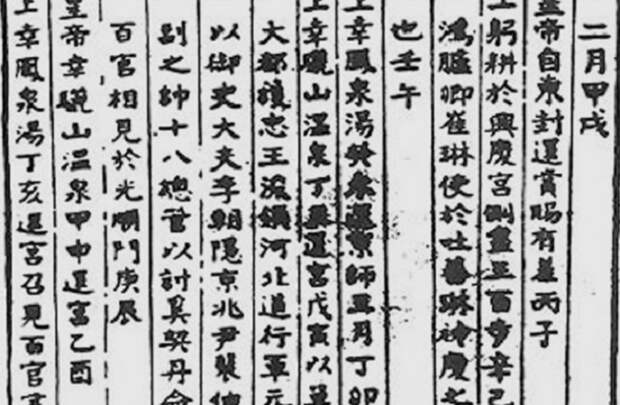 二月甲戌
皇帝自東封還賞賜有差丙子
上躬耕於興慶宮側盡三百步辛已
鴻臚卿崔琳使於吐蕃琳神慶之
也壬午
上幸鳳泉湯癸未還京師五月丁卯
上幸驪山溫泉丁丑還宮戊寅以單
大都護忠王浚領河北道行軍元
以御史大夫李朝隱京兆尹裴伷
副之帥十八總管以討奚契丹命
百官相見於光順門庚辰
皇帝幸驪山溫泉甲申還宮乙酉
上幸鳳泉湯丁亥還宮召見百官